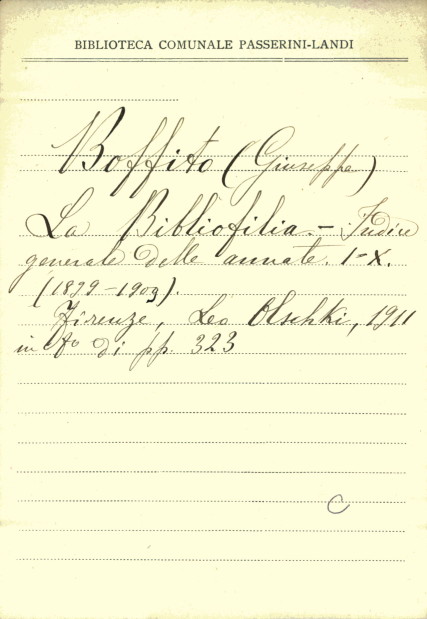 BIBLIOTECA COMUNALE PASSERINI-LANDI
Boffito (Giuseppe)
La Bibliofilia. - Indice
generale delle annate. I-X.
(1899-1909).
Firenze, Leo Olschki, 1911
in 4º di pp. 323
C